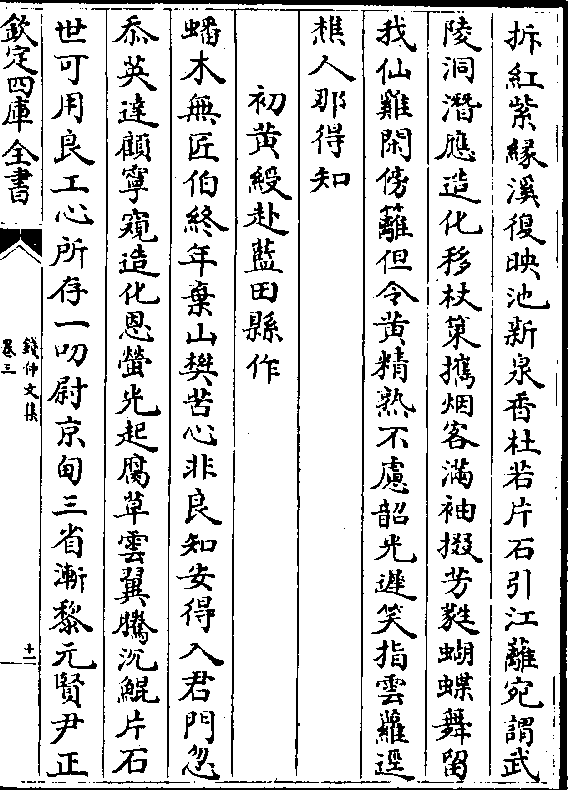 拆紅紫緣溪復映池新泉香杜若片石引江蘺宛謂武
陵洞潛應造化移杖策攜烟客滿袖掇芳蕤蝴蝶舞留
我仙雞閑傍籬但令黄精熟不慮韶光遲笑指雲蘿逕
樵人那得知
初黄綬赴藍田縣作
蟠木無匠伯終年棄山樊苦心非良知安得入君門忽
忝英達顧寧窺造化恩螢光起腐草雲翼騰沉鯤片石
世可用良工心所存一叨尉京甸三省漸黎元賢尹正
欽定四庫全書
錢仲文集
卷三
十二